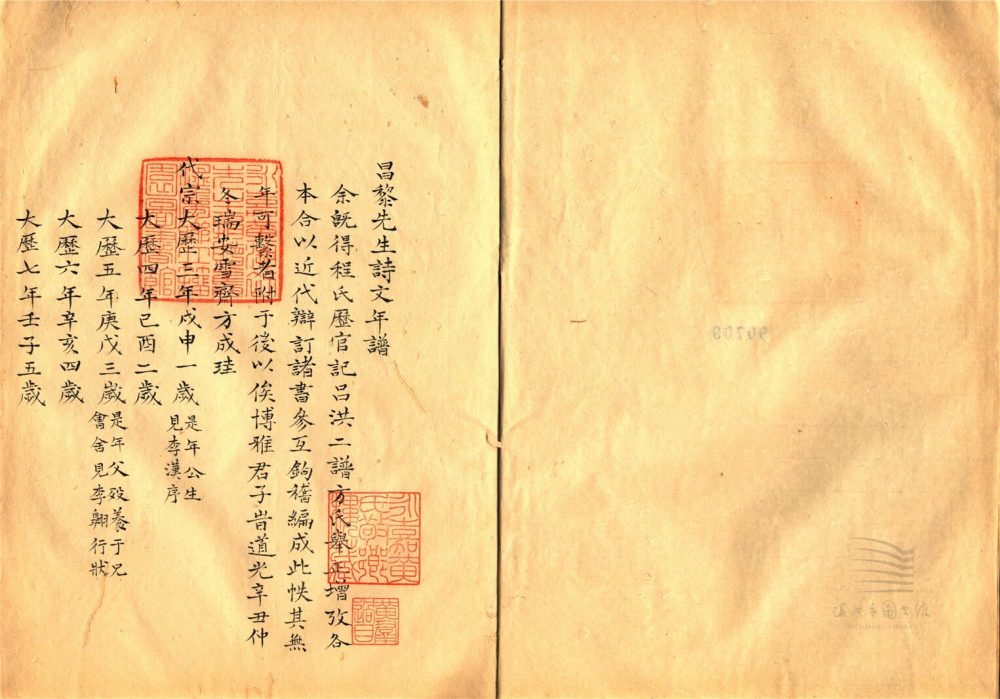 昌黎先生詩文年譜
余旣得程氏歷官記呂洪二譜方氏舉正增攷各
本合以近代辯訂諸書參互鉤稽編成此帙其無
年可繫者附于後以俟博雅君子旹道光辛丑仲
冬瑞安雪齊方成珪
代宗大歷三年戊申一歲 是年公生
見李漢序
大歷四年己酉二歲
大歷五年庚戌三歲 是年父歿養于兄
會舍見李翺行狀
大歷六年辛亥四歲
大歷七年壬子五歲
90709
溫州市圖書館
WENZHOU LIBRARY